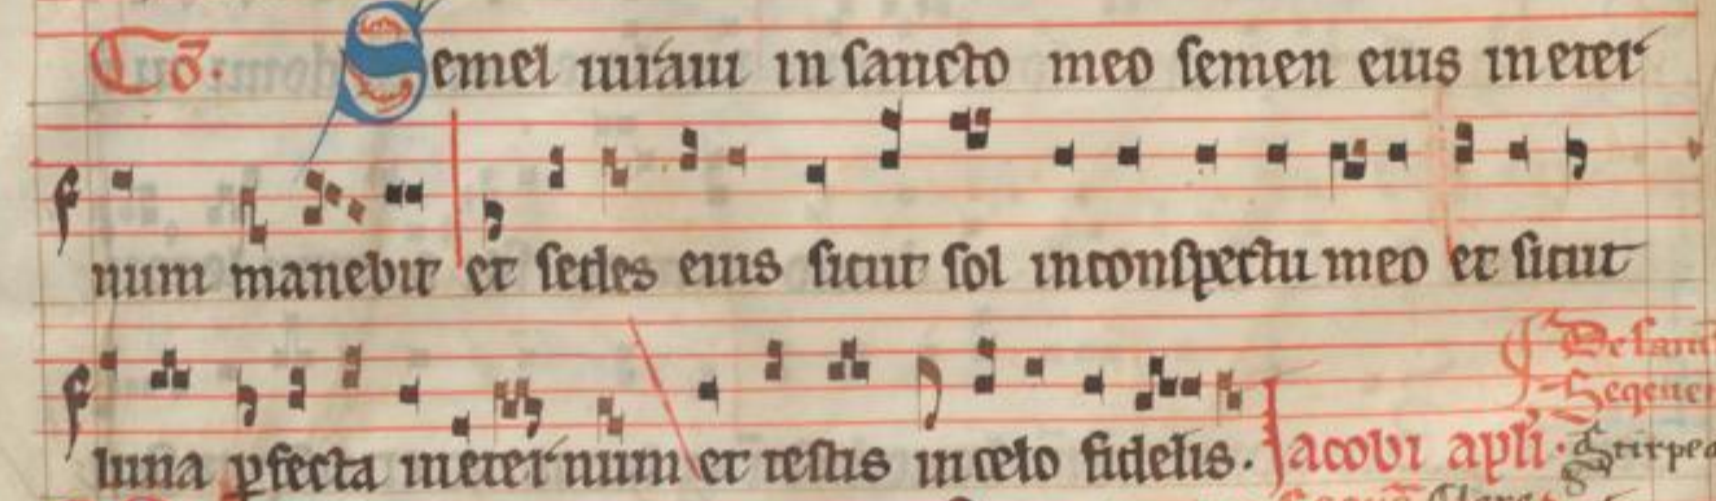 Cō. Semel iuraui in sancto meo semen eius in eter
num manebit et sedes eius sicut sol in conspectu meo et sicut
luna perfecta in eternum et testis in celo fidelis. Jacobi apli.
De sanct
Stirpe